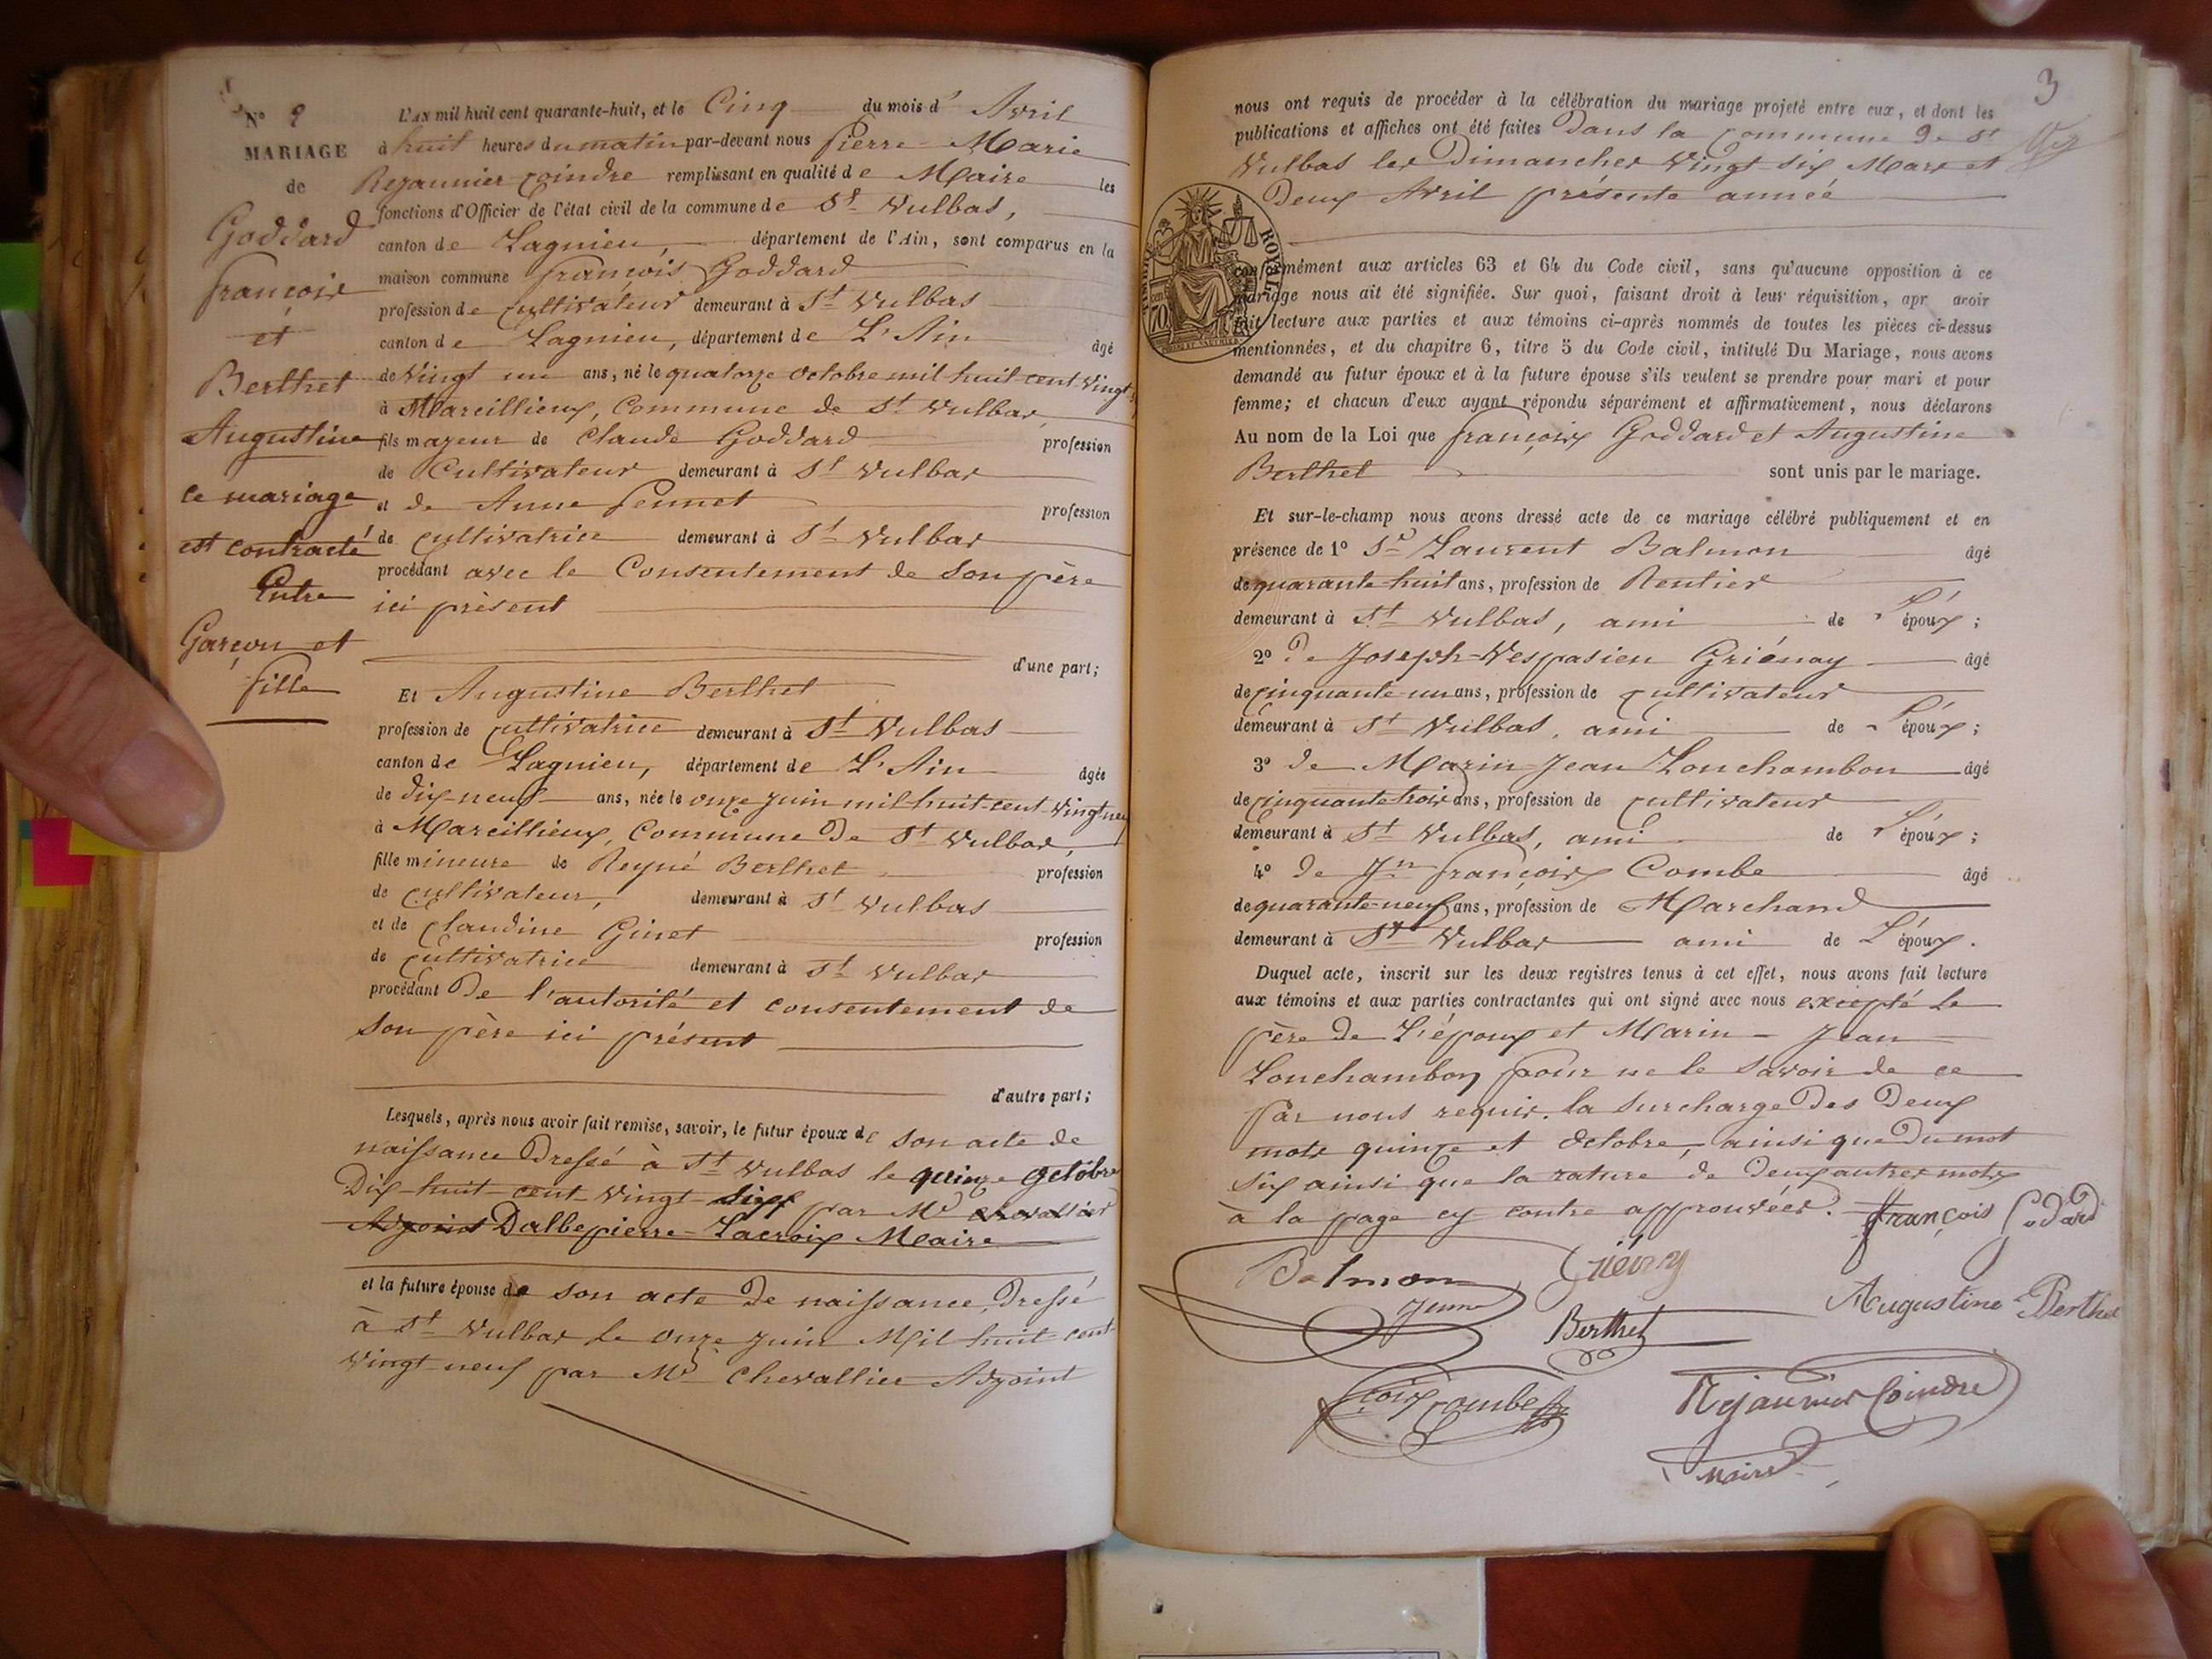 N° 2
MARIAGE
de
Goddard
françois
et
Berthet
Augustine
ce mariage
est contracté
Entre
Garçon et
fille
L'AN mil huit cent quarante-huit, et le Cinq du mois d' Avril
à huit heures du matin par-devant nous Pierre Marie
Rejaunier Coindre remplissant en qualité de Maire les
fonctions d'Officier de l'état civil de la commune de St Vulbas,
canton de Lagnieu, département de l'Ain, sont comparus en la
maison commune françois Goddard
profession de Cultivateur demeurant à St Vulbas
canton de Lagnieu, département de L'Ain âgé
de vingt un ans, né le quatorze octobre mil huit cent vingt
à Marcillieux, Commune de St Vulbas
fils majeur de Claude Goddard profession
de Cultivateur demeurant à St Vulbas
et de Anne Pennet profession
de cultivatrice demeurant à St Vulbas
procédant avec le Consentement de son père
ici présent
d'une part;
Et Augustine Berthet
profession de cultivatrice demeurant à St Vulbas
canton de Lagnieu, département de L'Ain âgée
de dix-neuf ans, née le onze juin mil huit-cent-vingt neuf
à Marcillieux, Commune De St Vulbas,
fille mineure de Reyné Berthet profession
de cultivateur, demeurant à St Vulbas
et de Claudine Ginet profession
de cultivatrice demeurant à St Vulbas
procédant De l'autorité et consentement de
son père ici présent
d'autre part;
Lesquels, après nous avoir fait remise, savoir, le futur époux de son acte de
naissance Dressé à St Vulbas le quinze octobre
Dix-huit-cent vingt-six par Mr chevallier
Adjoint Dalbepierre-Lacroix Maire
et la future épouse de son acte de naissance, Dressé
à St Vulbas le onze juin Mil huit-cent
vingt-neuf par Mr Chevallier Adjoint
3
nous ont requis de procéder à la célébration du mariage projeté entre eux, et dont les
publications et affiches ont été faites Dans la commune De St
Vulbas les Dimanches vingt-six Mars et
Deux Avril présente année
TIMBRE ROYAL
70
conformément aux articles 63 et 64 du Code civil, sans qu'aucune opposition à ce
mariage nous ait été signifiée. Sur quoi, faisant droit à leur réquisition, apr avoir
fait lecture aux parties et aux témoins ci-après nommés de toutes les pièces ci-dessus
mentionnées, et du chapitre 6, titre 5 du Code civil, intitulé Du Mariage, nous avons
demandé au futur époux et à la future épouse s'ils veulent se prendre pour mari et pour
femme; et chacun d'eux ayant répondu séparément et affirmativement, nous déclarons
Au nom de la Loi que françois Goddard et Augustine
Berthet sont unis par le mariage.
Et sur-le-champ nous avons dressé acte de ce mariage célébré publiquement et en
présence de 1° Sr Laurent Balmon âgé
de quarante huit ans, profession de Rentier
demeurant à St Vulbas, ami de L'époux;
2° De Joseph-Vespasien Griénay âgé
de cinquante-un ans, profession de cultivateur
demeurant à St Vulbas, ami de L'époux;
3° de Marin-Jean Lonchambon âgé
de cinquante trois ans, profession de cultivateur
demeurant à St Vulbas, ami de L'époux;
4° De Jn françois Combe âgé
de quarante-neuf ans, profession de Marchand
demeurant à St Vulbas ami de L'époux.
Duquel acte, inscrit sur les deux registres tenus à cet effet, nous avons fait lecture
aux témoins et aux parties contractantes qui ont signé avec nous excepté le
père de L'époux et Marin-Jean
Lonchambon pour ne le savoir de ce
par nous requis. la surcharge Des Deux
mots quinze et octobre, ainsi que Du mot
six ainsi que la rature de deux autres mots
à la page cy contre approuvées. François Godard
Balmon Griénay
Jeune
Augustine Berthet
Berthet
fçois Combe Rejaunier Coindre
maire